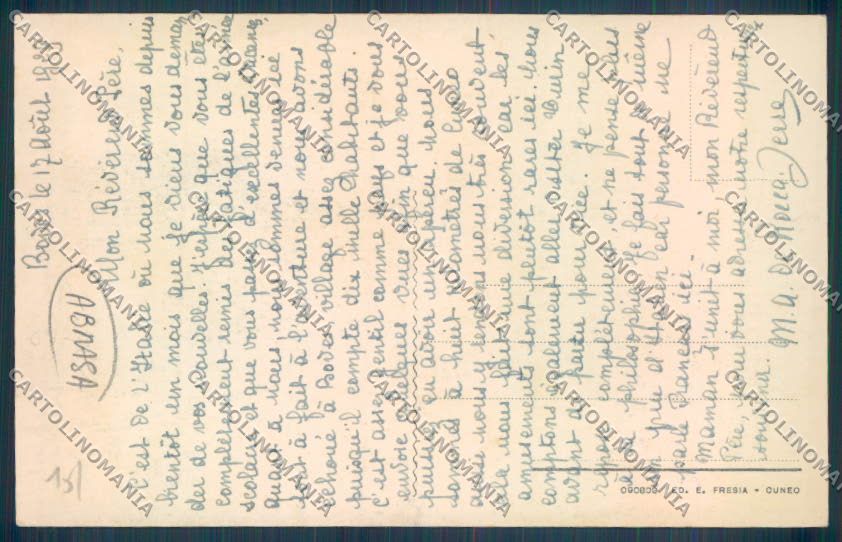 Boves le 17 Août 1953
Mon Révérend Père,
C'est de l'Italie où nous sommes depuis
bientôt un mois que je viens vous deman
der de vos nouvelles. J'espère que vous êtes
complètement remis des fatigues de l'année
scolaire et que vous passez d'excellentes vacances,
quant à nous nous sommes venues ici
tout à fait à l'aventure et nous avons
échoué à Boves village assez considérable
puisqu'il compte dix mille habitants.
c'est assez gentil comme pays et je vous
envoie quelques vues afin que vous
puissiez en avoir un aperçu nous
sommes à huit kilomètres de Cuneo
aussi nous y rendons nous très souvent
cela nous fait une diversion car les
amusements sont plutôt rares ici. nous
comptons également aller visiter Turin
avant de partir pour Nice. Je me
repose complètement et ne pense plus
à la philosophie. Je fais tout de même
un peu d' car personne ne
parle Français ici.
Maman s'unit à moi, mon Révérend
Père, pour vous adresser notre respectueux
souvenir. M. A. De
ABNASA
15/
090809 - ED. E. FRESIA - CUNEO
CARTOLINOMANIA